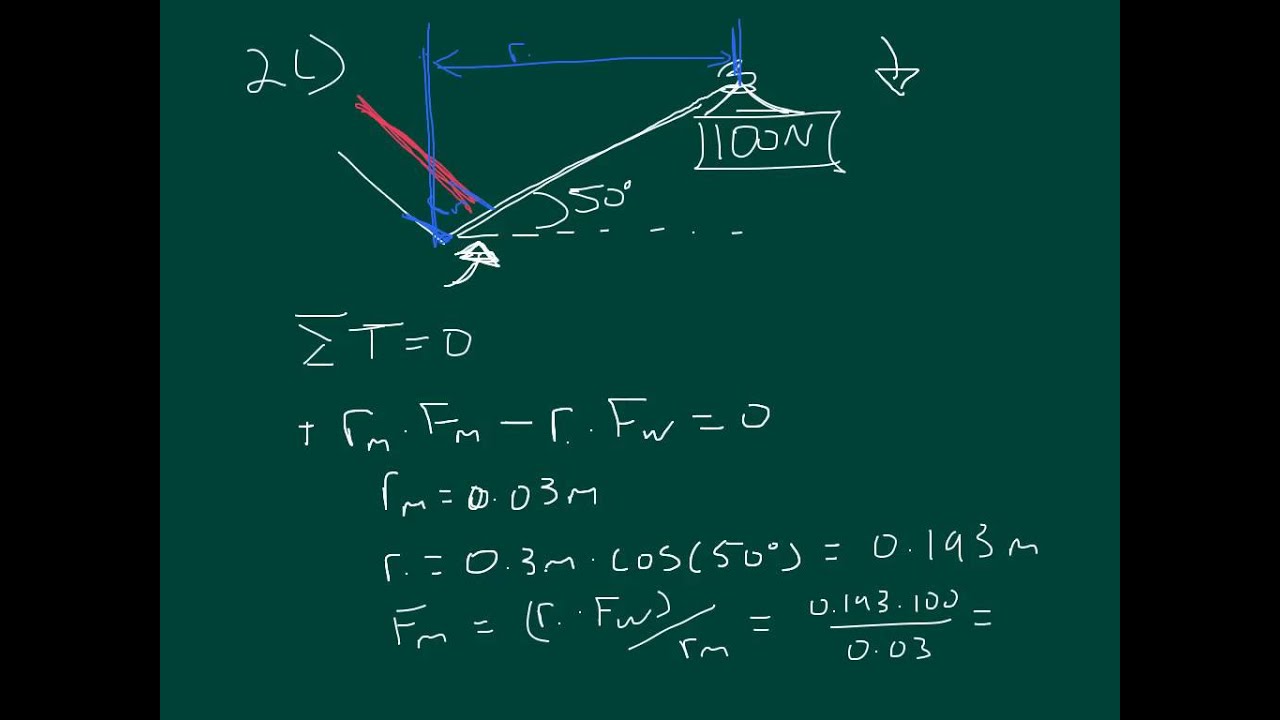 2c)
r.
100N
r
50°
ΣT=0
+ rm. Fm - r. · Fw = 0
rm = 0.03m
r. = 0.3m · cos(50°) = 0.193m
Fm = (r. · Fw)/rm = 0.193.100/0.03 =